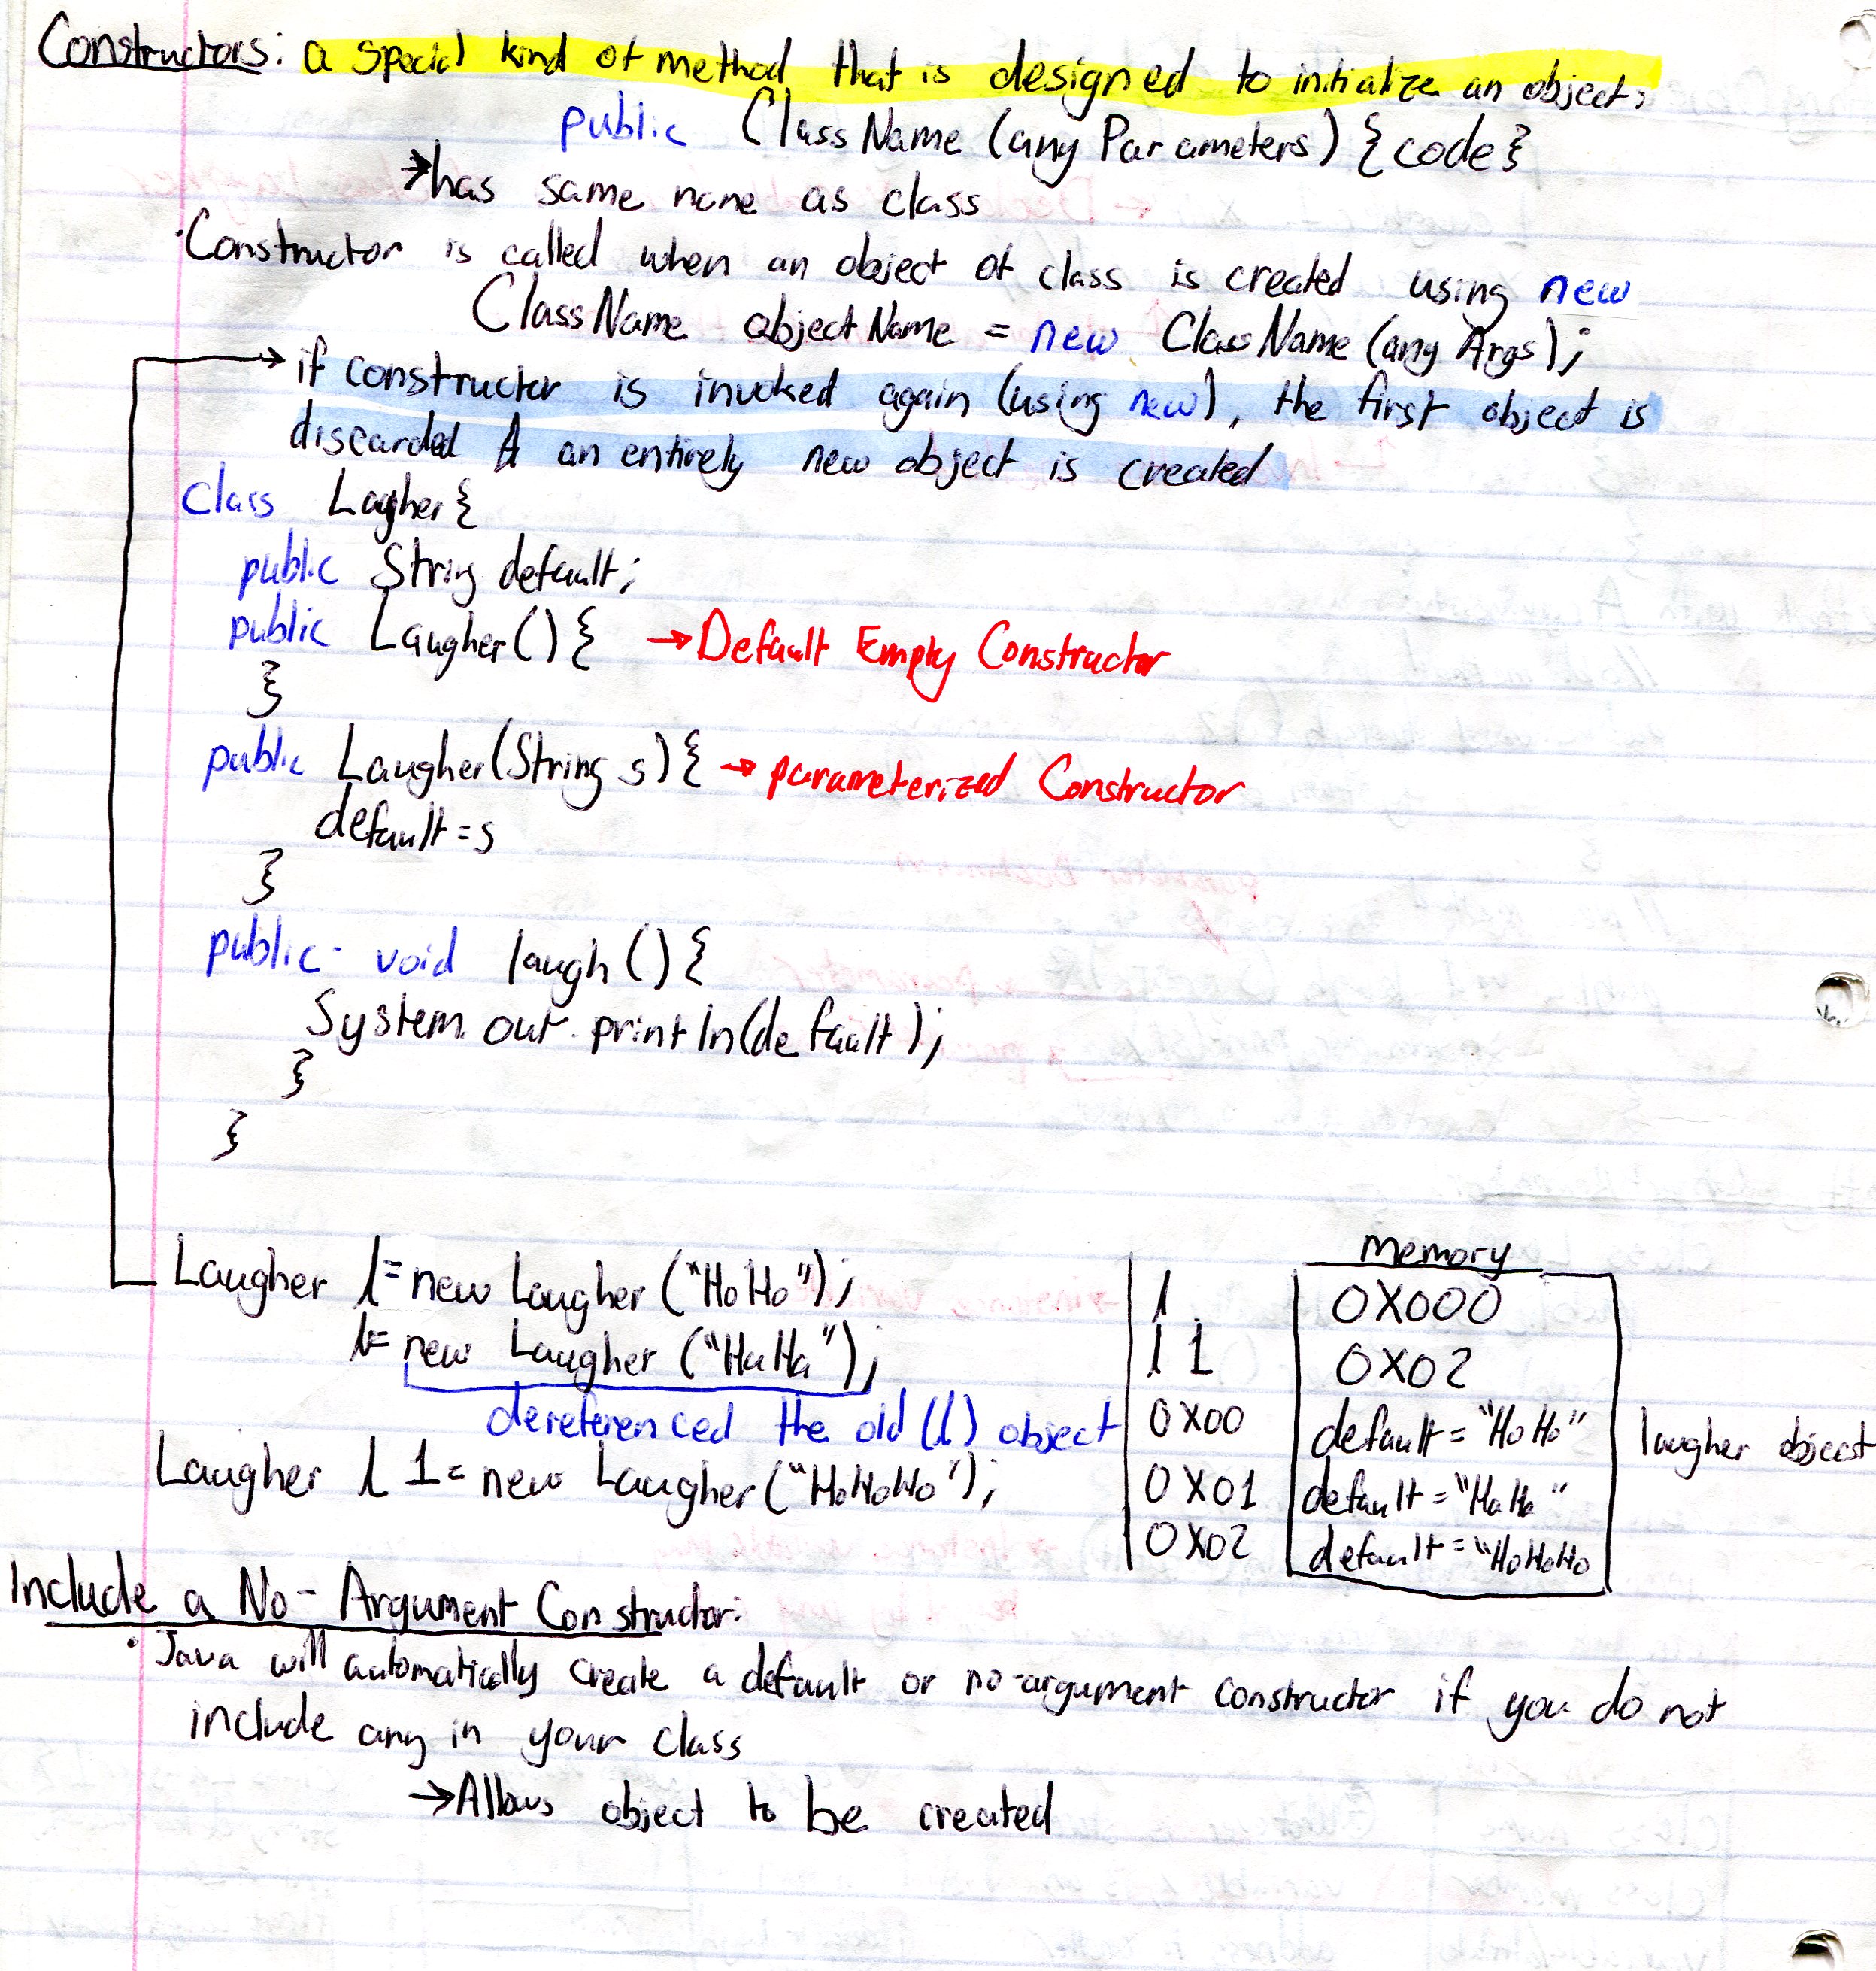 Constructors: a special kind of method that is designed to initialize an object.
public ClassName (any Parameters) {code}
→has same name as class
·Constructor is called when an object of class is created using new
ClassName objectName = new ClassName (any Args);
→if constructor is invoked again (using new), the first object is
discarded & an entirely new object is created
class Lagher {
public String default;
public Laugher() { →Default Empty Constructor
}
public Laugher(String s) { → parameterized Constructor
default = s
}
public void laugh () {
System.out.println(default);
}
}
Laugher l = new Laugher ("HoHo");
l = new Laugher ("HaHa");
dereferenced the old (l) object
Laugher l 1 = new Laugher ("HoHoHo");
Memory
l 0X000
l 1 0X02
0X00 default = "HoHo" laugher object
0X01 default = "HaHa"
0X02 default = "HoHoHo
Include a No-Argument Constructor:
· Java will automatically create a default or no-argument constructor if you do not
include any in your class
→Allows object to be created